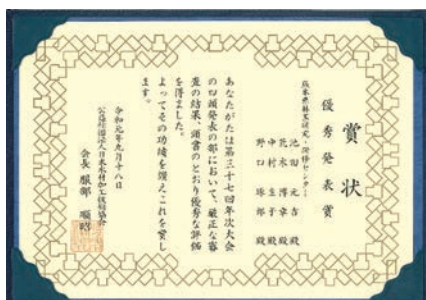 賞状
優秀発表賞
熊本県林業研究・研修センター
池田元吉殿
荒木博章殿
中村圭子殿
野口琢郎殿
あなたがたは第三十七回年次大会
の口頭発表の部において、厳正な審
査の結果、頭書のとおり優秀な評価
を得ました。
よってその功績を讃えこれを賞し
ます。
令和元年九月十八日
公益社団法人日本木材加工技術協会
会長 服部順昭